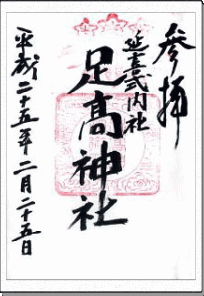 参拝
延喜式内社
足高神社
平成二十五年二月二十五日